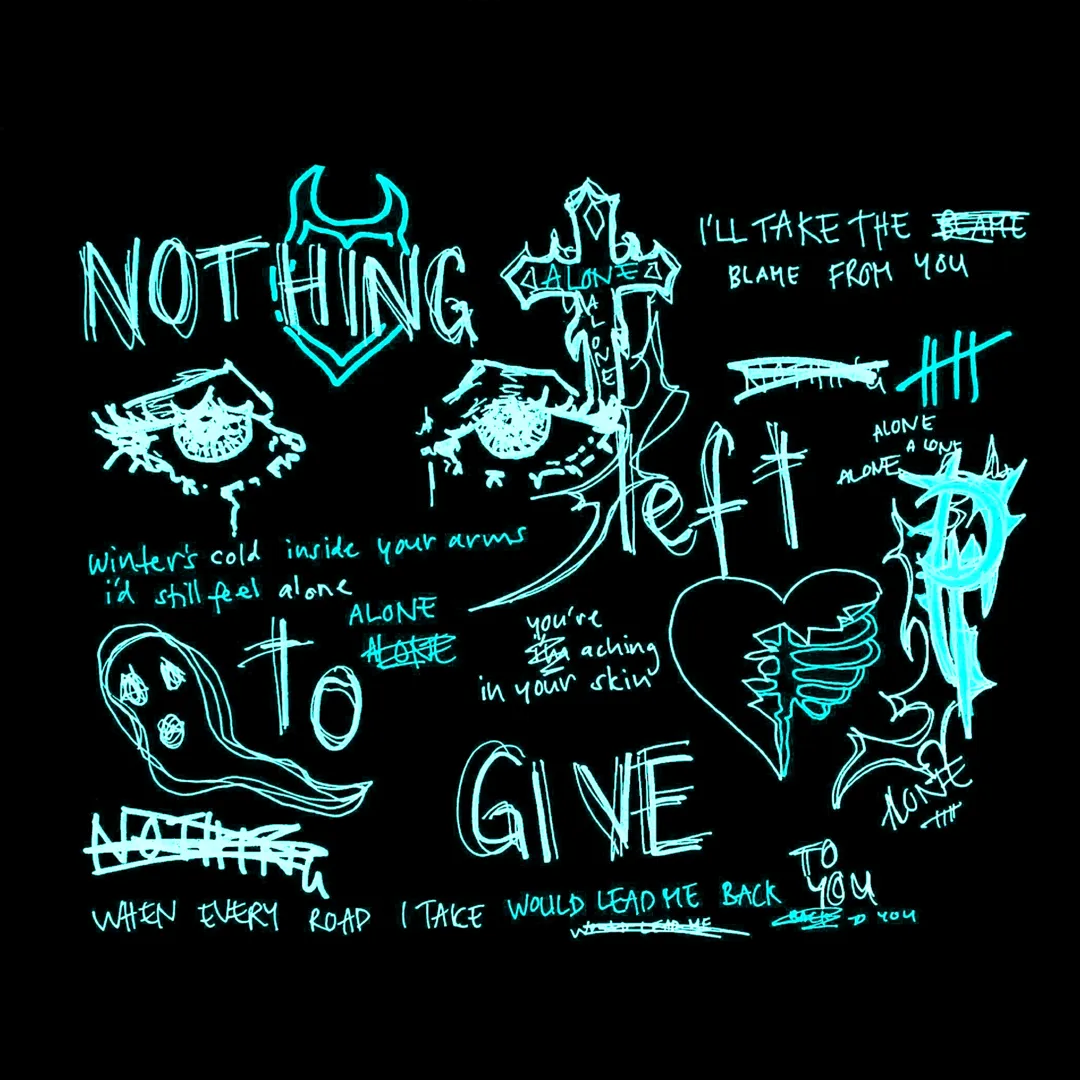 NOTHING
ALONE
ALONE
I'LL TAKE THE BLAME
BLAME FROM YOU
NOTHING
ALONE
ALONE
ALONE
left
winter's cold inside your arms
i'd still feel alone
ALONE
ALONE
to
you're
I'm aching
in your skin
GIVE
ALONE
NOTHING
TO
YOU
WHEN EVERY ROAD I TAKE WOULD LEAD ME BACK
WOULD LEAD ME
BACK TO YOU